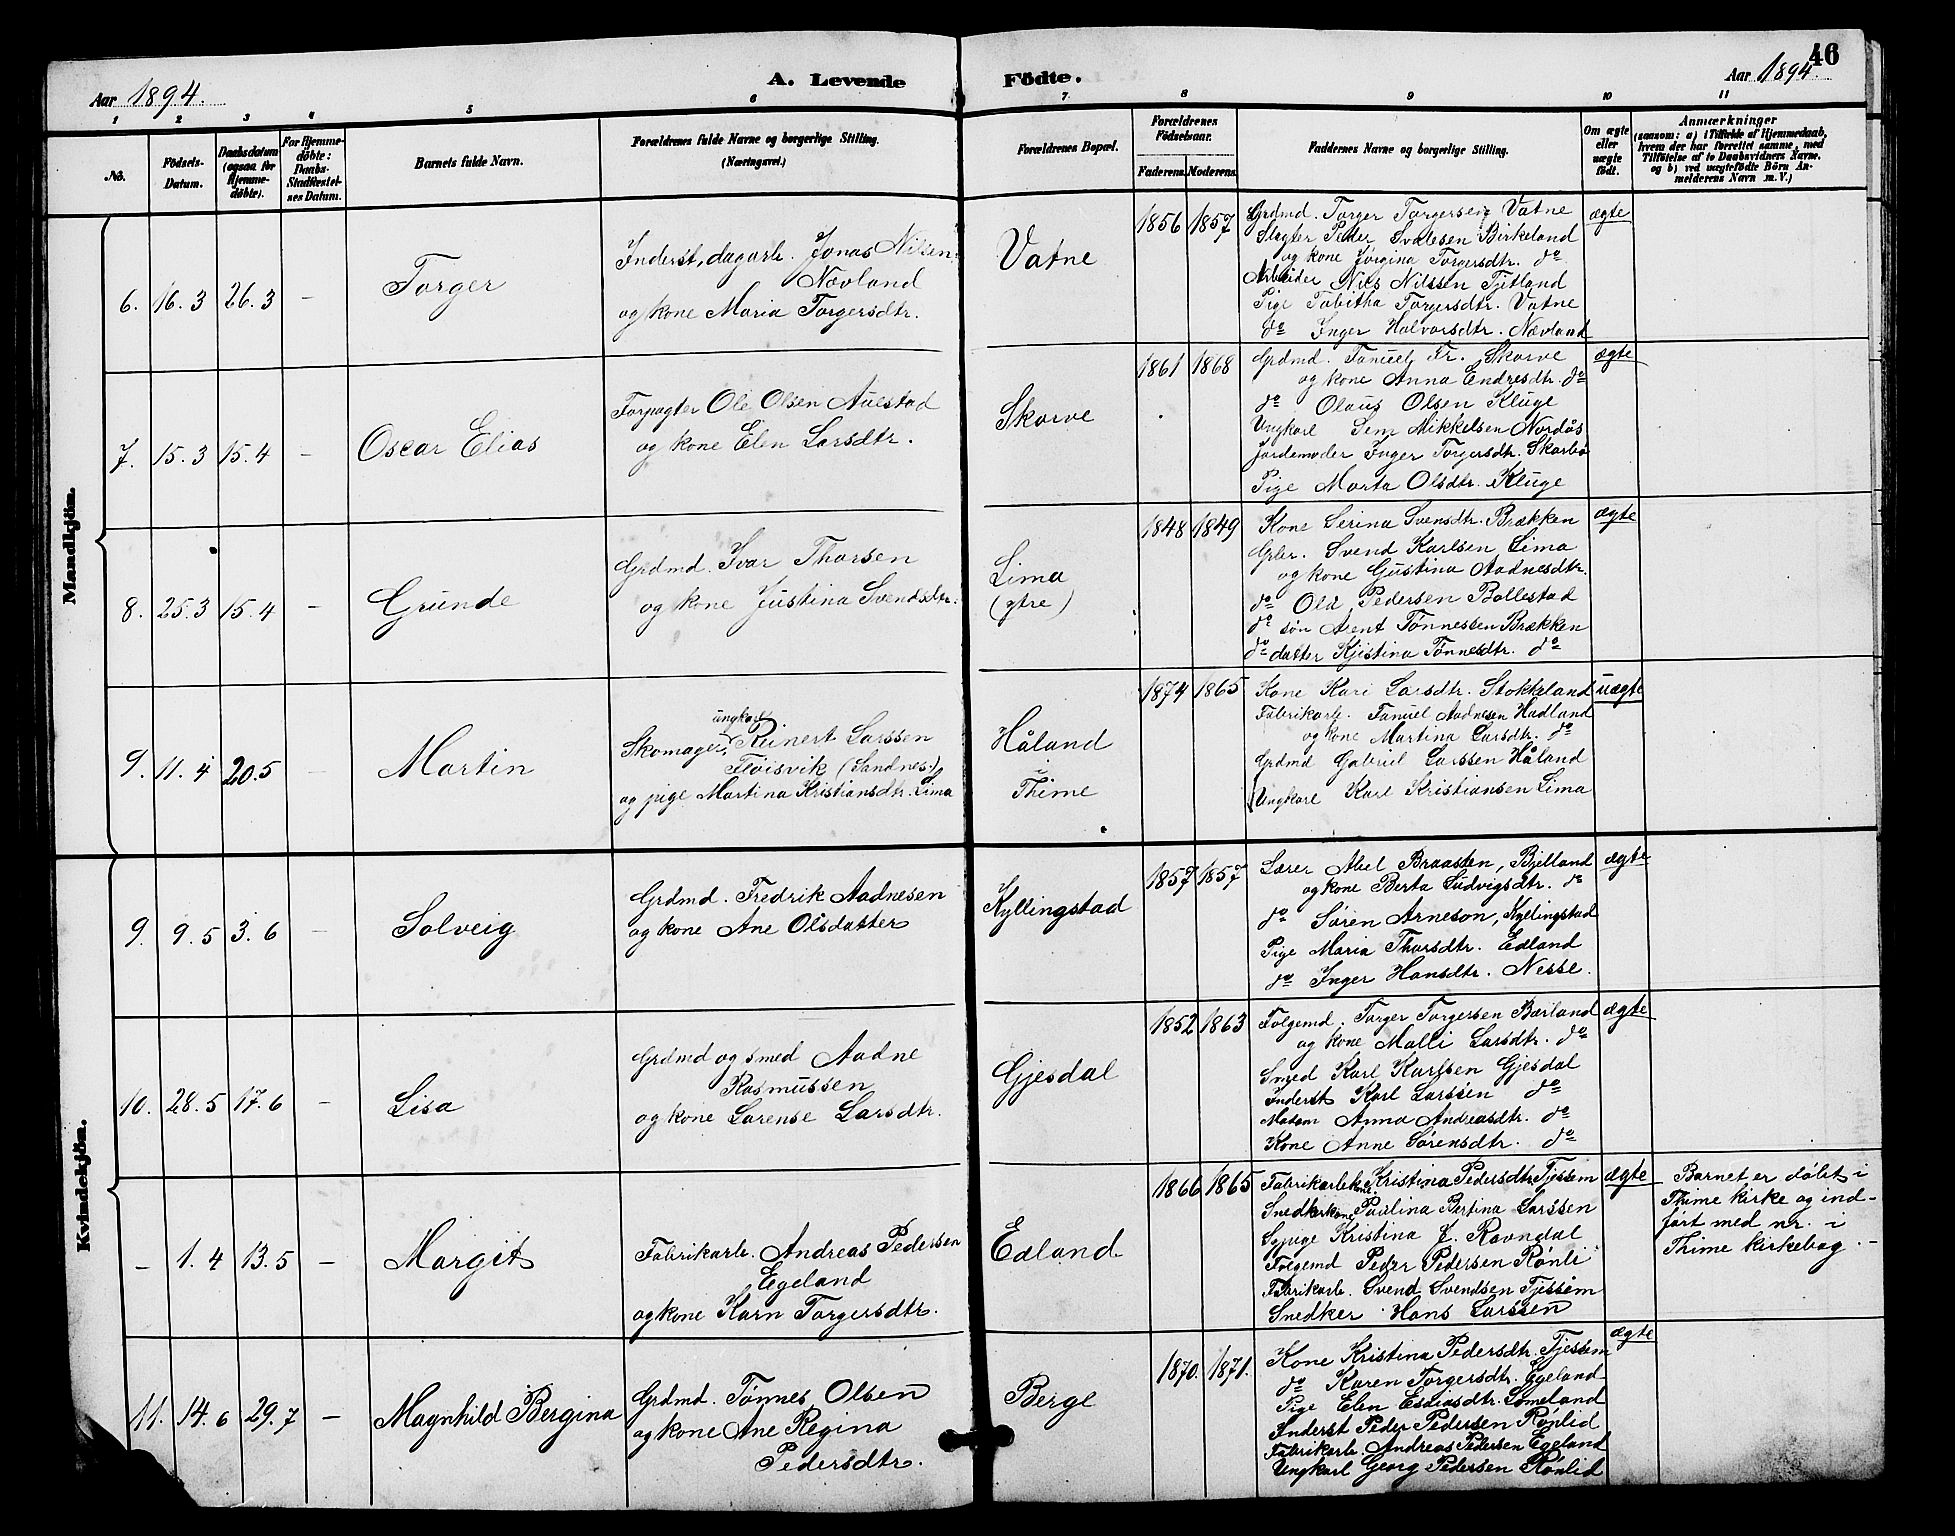 46
Aar 1894.
A. Levende Födte.
Aar 1894.
1 2 3 4 5 6 7 8 9 10 11
No.
Födsels-Datum.
Daabsdatum (ogsaa for Hjemme-döbte).
For Hjemme-döbte: Daabs-Stadfæstel-ses Datum.
Barnets fulde Navn.
Forældrenes fulde Navne og borgerlige Stilling.
(Næringsvei.)
Forældrenes Bopæl.
Forældrenes Födselsaar.
Faderens. Moderens.
Faddernes Navne og borgerlige Stilling.
Om ægte eller uægte födt.
Anmærkninger
(saasom: a) i Tilfælde af Hjemmedaab,
hvem der har forrettet samme, med
Tilföielse af to Daabsvidners Navne.
og b) ved uægtefödte Börn An-
melderens Navn m. V.)
Mandkjön.
6. 16.3 26.3 –
Torger
Inderst, dagarb. Jonas Nilsen
Nævland
og kone Maria Torgersdtr.
Vatne
1856 1857
Grdmd. Torger Torgersen Vatne
Slagter Peder Svalesen Birkeland
og kone Jorgina Torgersdtr. do
Arbeider Nils Nilssen Tjetland
Pige Tabitha Torgersdtr. Vatne
do Inger Halvorsdtr. Nævland
ægte
7. 15.3 15.4 –
Oscar Elias
Forpagter Ole Olsen Auestad
og kone Elen Larsdtr.
Skorve
1861 1868
Grdmd. Tanuel Fr. Skorve
og kone Anna Endresdtr. do
do Olaus Olsen Kluge
Ungkarl Sem Mikkelsen Nordås
Jordemoder Inger Torgersdtr. Skorbø
Pige Marta Olsdtr. Kluge
ægte
8. 25.3 15.4 –
Grunde
Grdmd. Ivar Thorsen
og kone Justina Svendsdtr.
Lima
(ytre)
1848 1849
Kone Serina Svensdtr. Brækken
Grbr. Svend Karlsen Lima
og kone Gustina Aadnesdtr.
do Ole Pedersen Bollestad
do søn Arent Tönnessen Brækken
do datter Kjistina Tönnesdtr. do
ægte
9. 11.4 20.5
Martin
ungkarl
Skomager, Reinert Larssen
Floisvik (Sandnes)
og pige Martina Kristiansdtr. Lima
Håland
i
Thime
1874 1865
Kone Kari Larsdtr. Stokkeland
Fabrikarb. Tanuel Aadnesen Hadland
og kone Martina Larsdtr. do
Grdmd Gabriel Larssen Håland
Ungkarl Karl Kristiansen Lima
uægte
Kvindekjön.
9. 9.5 3.6
Solveig
Grdmd. Fredrik Aadnesen
og kone Ane Olsdatter
Kyllingstad
1857 1857
Lærer Abel Braasten, Bjelland
og kone Berta Ludvigsdtr. do
do Sören Arneson, Kyllingstad
Pige Maria Thorsdtr. Edland
do Inger Hansdtr. Nesse.
ægte
10. 28.5 17.6 –
Lisa
Grdmd og smed Aadne
Rasmussen
og kone Lorense Larsdtr.
Gjesdal
1852 1863
Folgemd. Torger Torgersen Bærland
og kone Malli Larsdtr. do
Smed Karl Karlsen Gjesdal
Inderst Karl Larssen do
Madam Anna Andreasdtr. do
Kone Anne Sörensdtr. do
ægte
– 1.4 13.5 –
Margit
Fabrikarb. Andreas Pedersen
Egeland
og kone Karn Torgersdtr.
Edland
1866 1865
Fabrikarb. kone Kristina Pedersdtr. Tjessem
Snedkerkone Paulina Bertina Larssen
Sypige Kristina J. Ravndal
Folgemd Peder Pedersen Rönli
Fabrikarb. Svend Svendsen Tjessem
Snedker Hans Larssen
ægte
Barnet er döbt i
Thime kirke og ind-
fört med nr. i
Thime kirkebog. –
11. 14.6 29.7 –
Magnhild Bergina
Grdmd. Tönnes Olsen
og kone Ane Regina
Pedersdtr.
Berge
1870. 1871.
Kone Kristina Pedersdtr. Tjessem
do Karen Torgersdtr. Egeland
Pige Elen Esaiasdtr. Lomeland
Inderst Peder Pedersen Rönlid
Fabrikarb. Andreas Pedersen Egeland
Ungkarl Georg Pedersen Rönlid
ægte